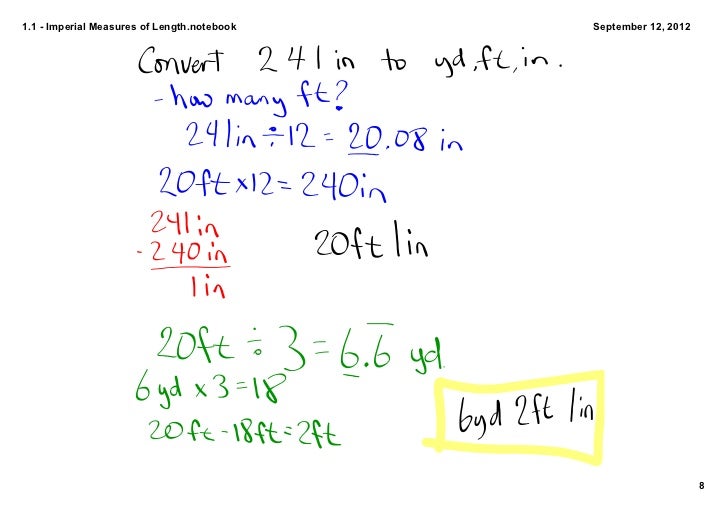 1.1 - Imperial Measures of Length.notebook
September 12, 2012
Convert 241in to yd, ft, in.
- how many ft?
241in ÷ 12 = 20.08 in
20ft x 12 = 240in
241in
- 240in
1in
20ft 1in
20ft ÷ 3 = 6.6̅ yd
6yd x 3 = 18
20ft - 18ft = 2ft
6yd 2ft 1in
8